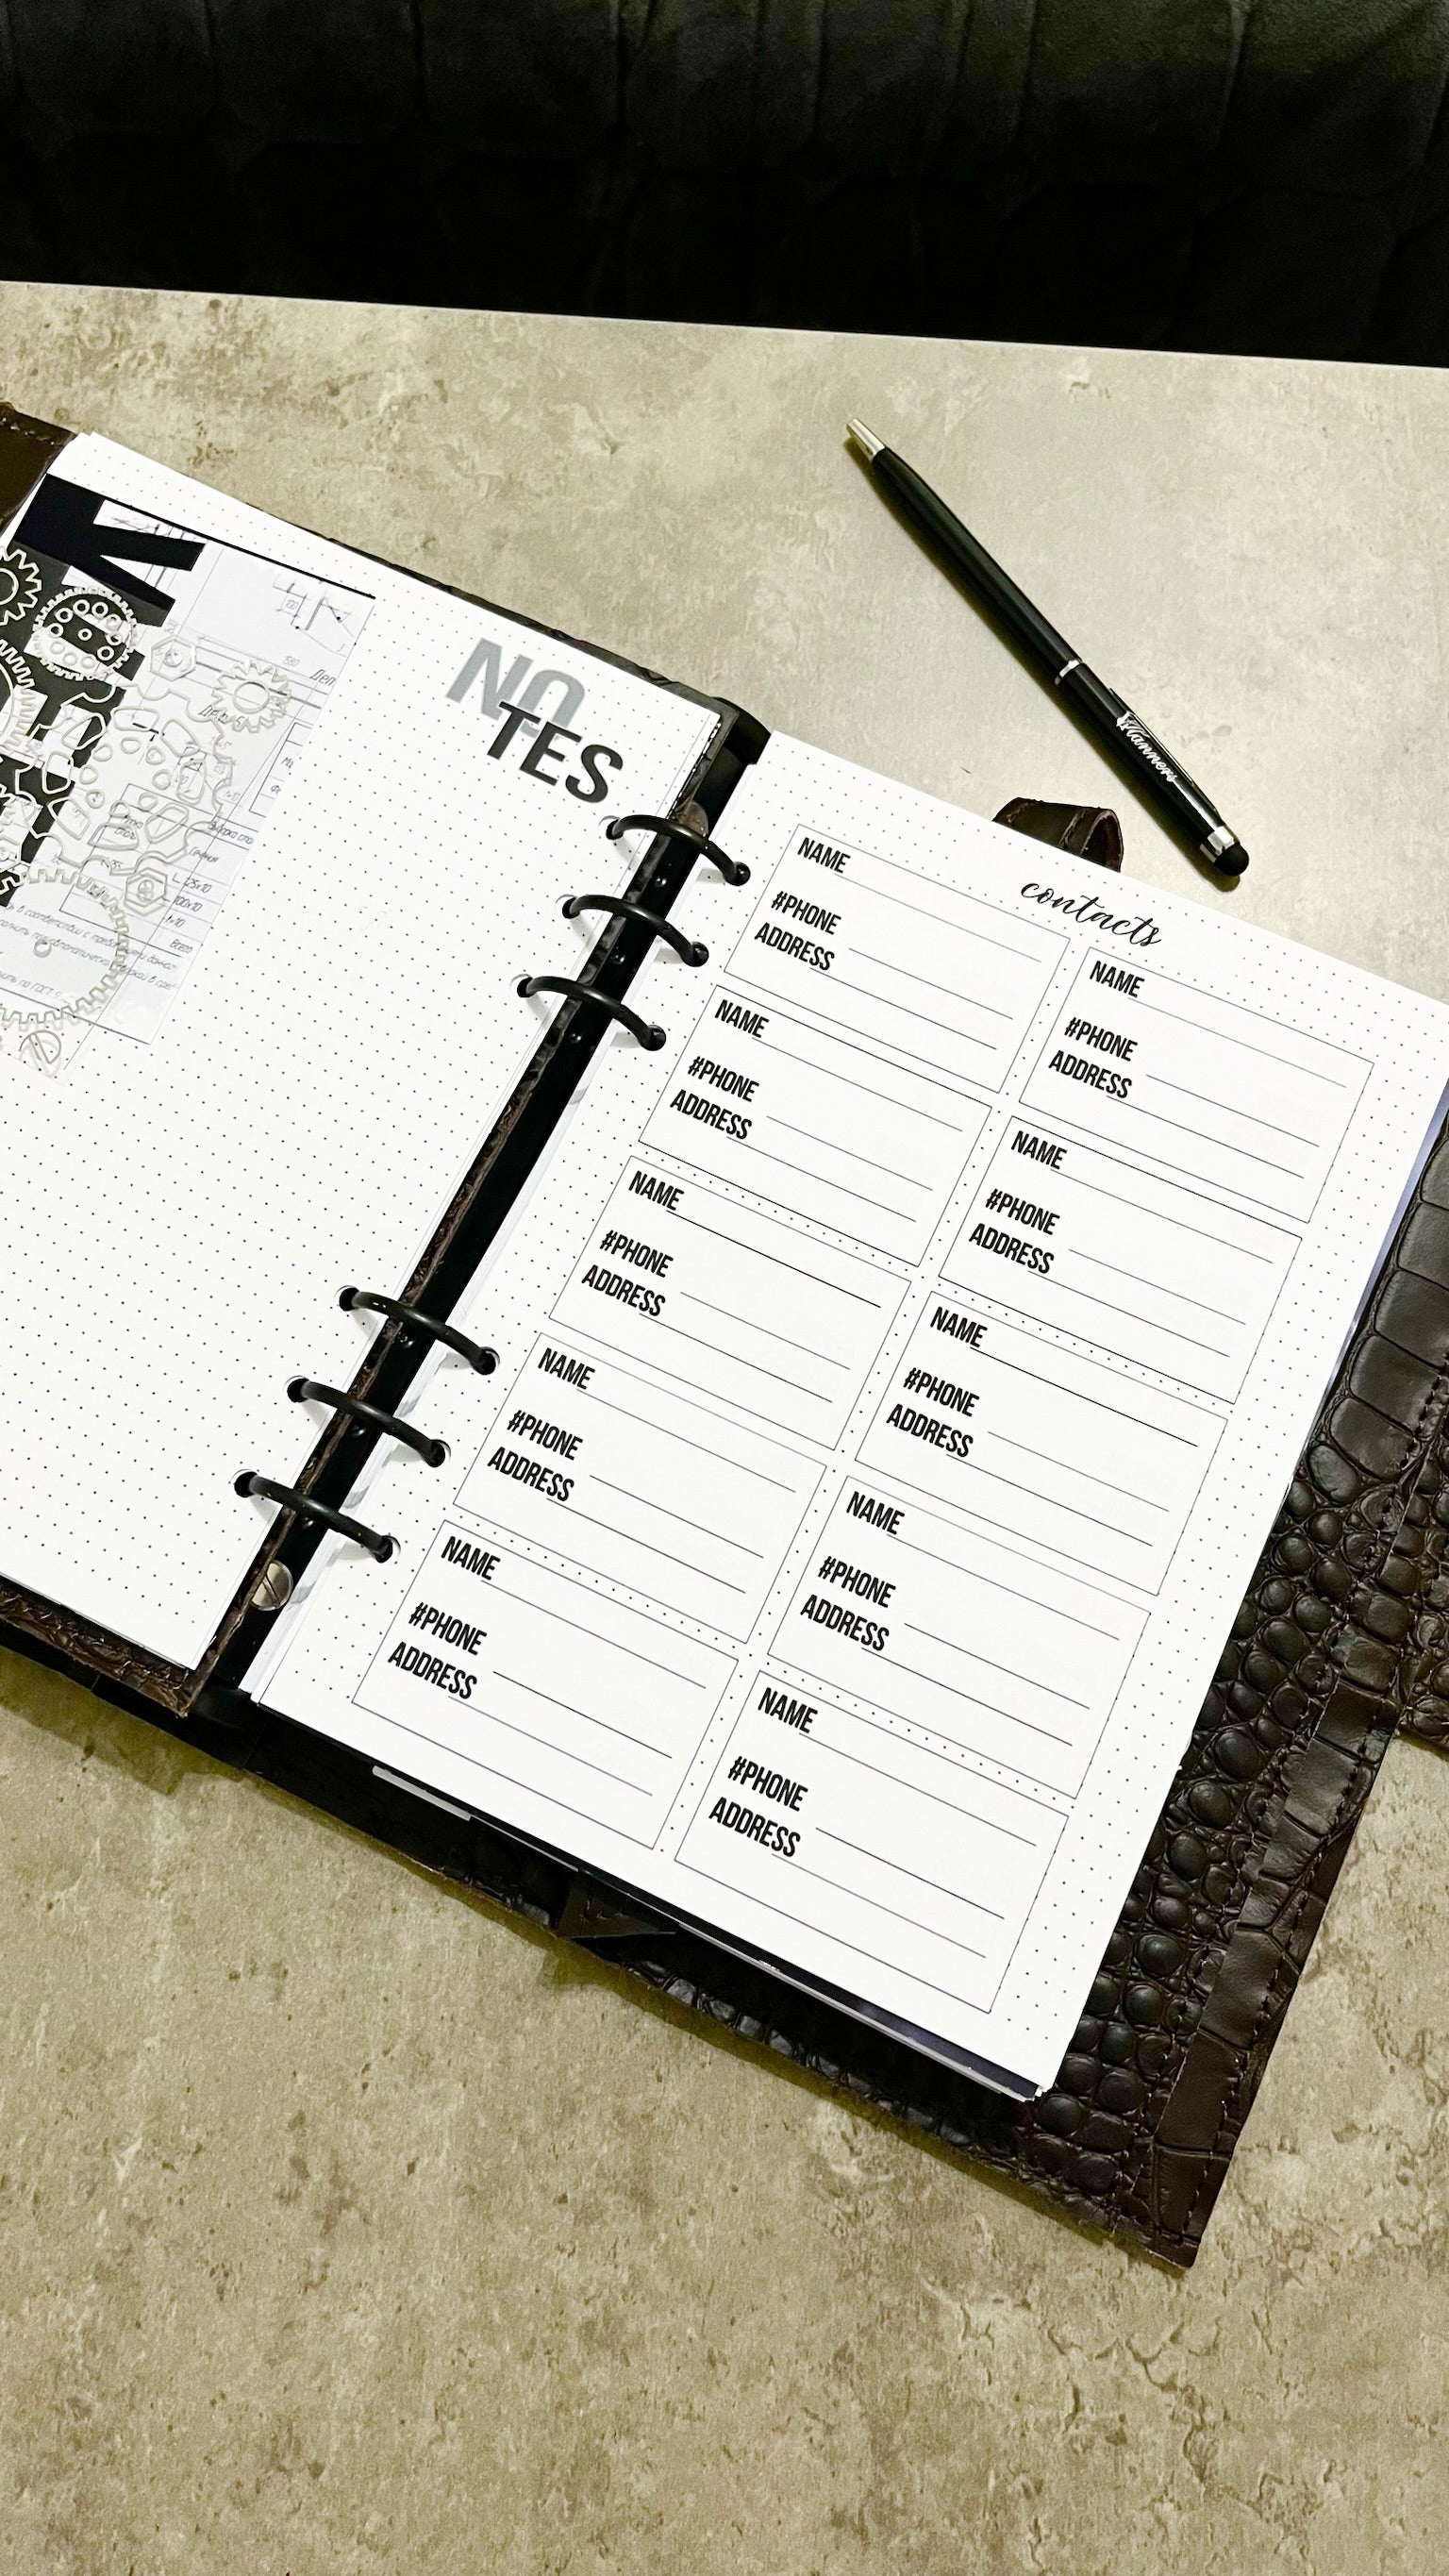 L 125x10
Всего
в соответствии с
по ГОСТ
NO
TES
Planners
contacts
NAME
#PHONE
ADDRESS
NAME
#PHONE
ADDRESS
NAME
#PHONE
ADDRESS
NAME
#PHONE
ADDRESS
NAME
#PHONE
ADDRESS
NAME
#PHONE
ADDRESS
NAME
#PHONE
ADDRESS
NAME
#PHONE
ADDRESS
NAME
#PHONE
ADDRESS
NAME
#PHONE
ADDRESS